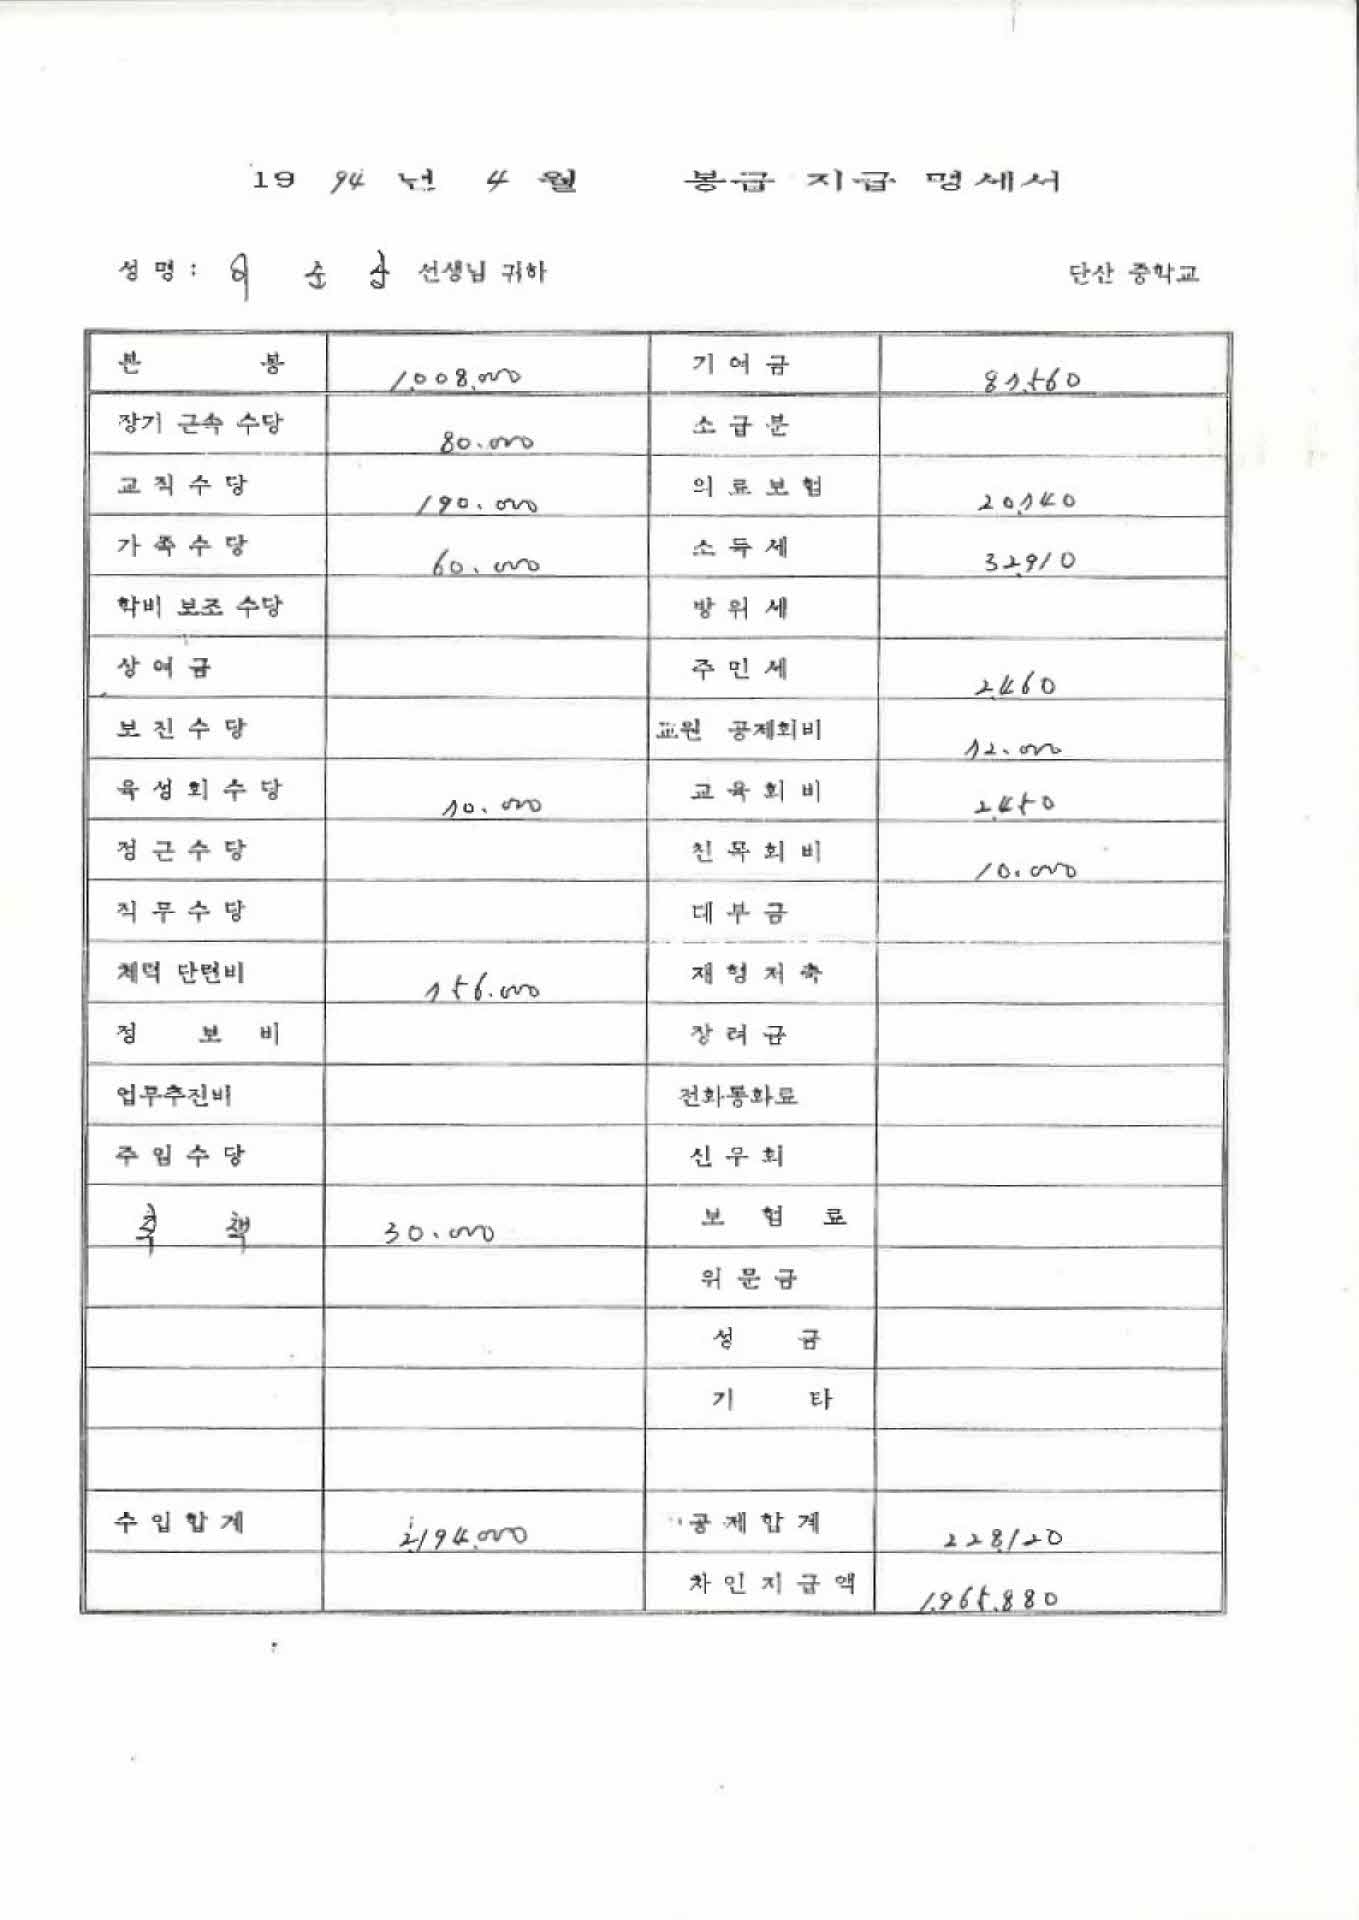 19 94 년 4 월 봉급 지급 명세서
성 명 : 이 순 선생님 귀하 단산 중학교
본 봉 1.008.000 기 여 금 81.560
장기 근속 수당 80.000 소 급 분
교 직 수 당 190.000 의 료 보 험 20.140
가 족 수 당 60.000 소 득 세 32.910
학비 보조 수당 방 위 세
상 여 금 주 민 세 2.460
보 진 수 당 교원 공제회비 12.000
육 성 회 수 당 10.000 교 육 회 비 2.450
정 근 수 당 친 목 회 비 10.000
직 무 수 당 대 부 금
체력 단련비 156.000 재 형 저 축
정 보 비 장 려 금
업무추진비 전화통화료
주 임 수 당 신 우 회
책 30.000 보 험 료
위 문 금
성 금
기 타
수 입 합 계 2.194.000 공 제 합 계 228.120
차 인 지 급 액 1.965.880